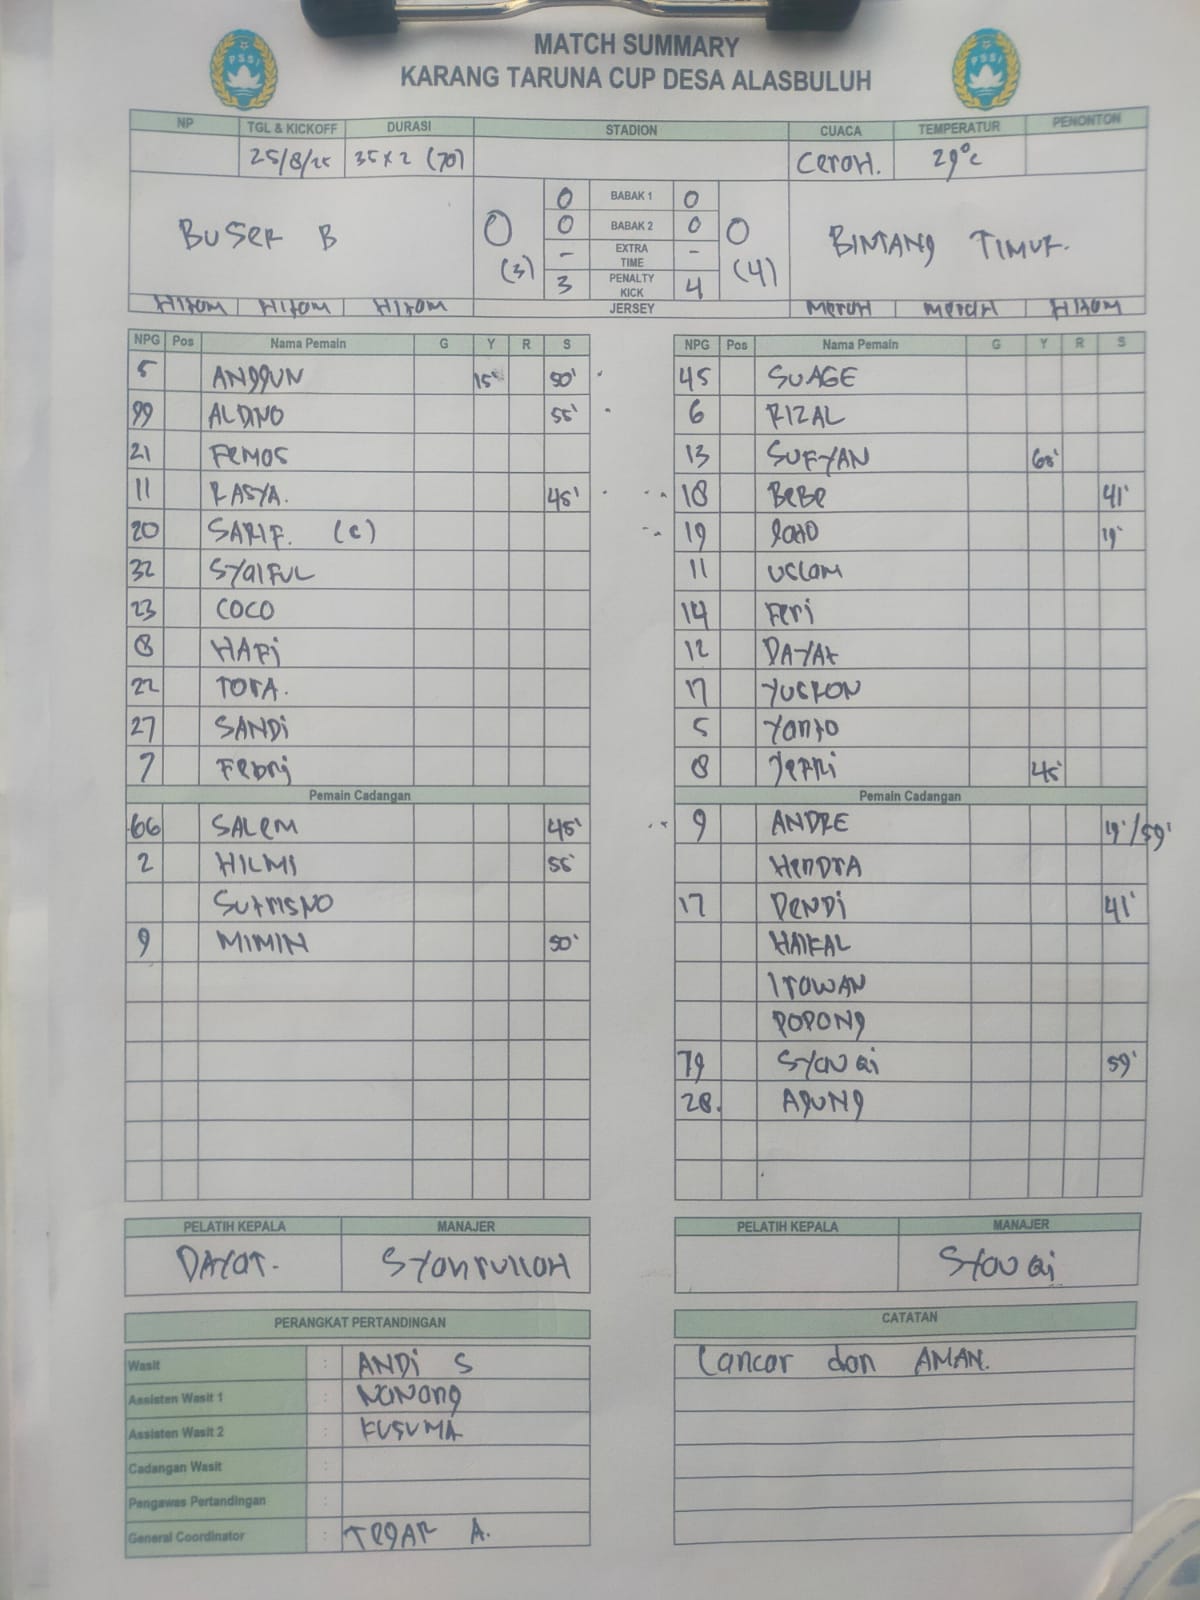 MATCH SUMMARY
KARANG TARUNA CUP DESA ALASBULUH
PSSI PSSI
NP TGL & KICKOFF DURASI STADION CUACA TEMPERATUR PENONTON
25/8/25 35 x 2 (70) Cerah. 29°c
BUSER B 0 (3) BINTANG TIMUR. 0 (4)
0 BABAK 1 0
0 BABAK 2 0
- EXTRA TIME -
3 PENALTY KICK 4
HITAM HITAM HITAM JERSEY MERAH MERAH HITAM
NPG Pos Nama Pemain G Y R S
5 ANGGUN 15' 50'
99 ALDINO 55'
21 FEMOS
11 RASYA. 45'
20 SARIF. (C)
32 SYAIFUL
23 COCO
8 HAFI
22 TORA.
27 SANDI
7 Febri
Pemain Cadangan
66 SALEM 45'
2 HILMI 55'
SUTRISNO
9 MIMIN 50'
NPG Pos Nama Pemain G Y R S
45 SUAGE
6 RIZAL
13 SUFYAN 68'
18 BeBe 41'
19 19'
11
14 Feri
12 DAYAT
17
5 Yanto
8 Jefri 45'
Pemain Cadangan
9 ANDRE 19'/59'
HENDRA
17 DENDI 41'
HAIKAL
IRAWAN
POPONG
79 59'
28. AGUNG
PELATIH KEPALA MANAJER
DAYAT. Syahrullah
PELATIH KEPALA MANAJER
PERANGKAT PERTANDINGAN
Wasit : ANDI S
Assisten Wasit 1 : NANANG
Assisten Wasit 2 : KUSUMA
Cadangan Wasit :
Pengawas Pertandingan :
General Coordinator : TEGAR A.
CATATAN
Lancar dan AMAN.